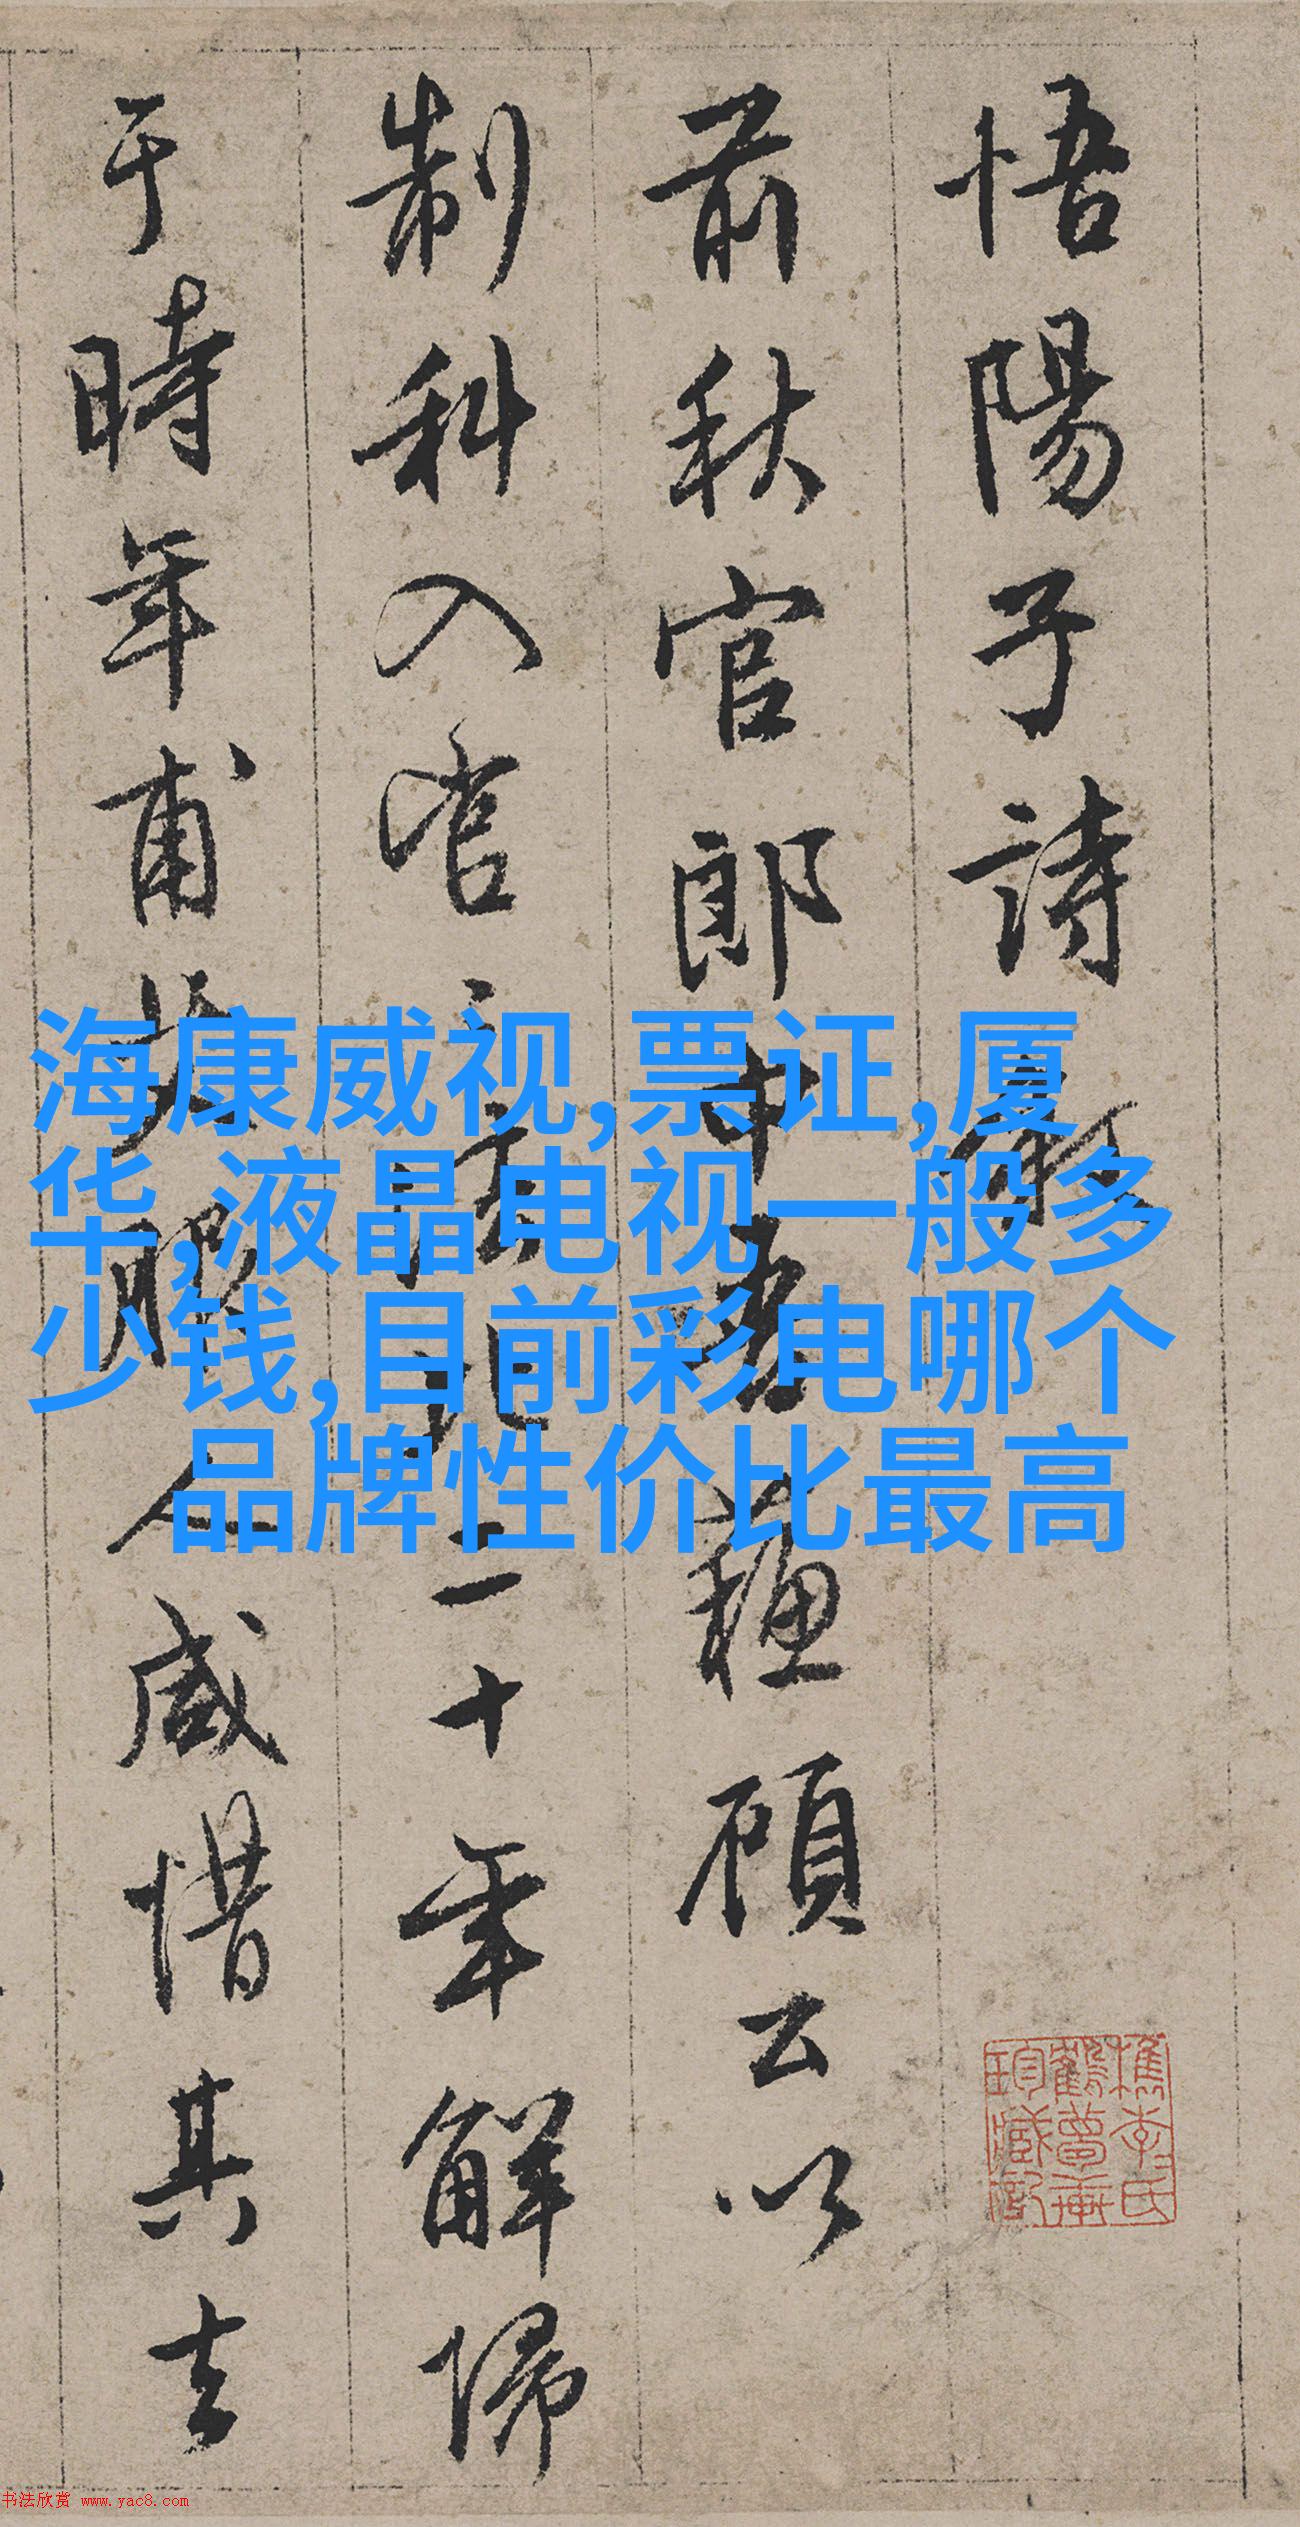 悟陽子詩
前秋官郎中吾蘓顧公以
制科入官
二十年解歸
于時年甫
人咸惜其去
海康威视,票证,厦
华,液晶电视一般多
少钱,目前彩电哪个
品牌性价比最高
书法欣赏 www.yac8.com